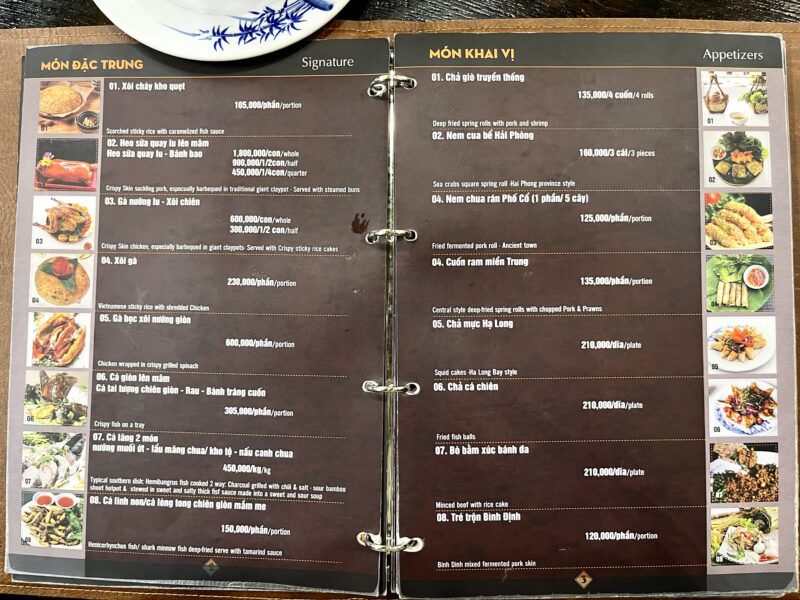 MÓN ĐẶC TRƯNG
Signature
01. Xôi cháy kho quẹt
105,000/phần/portion
Scorched sticky rice with caramelized fish sauce
02. Heo sữa quay lu lên mâm
Heo sữa quay lu - Bánh bao
1,800,000/con/whole
900,000/1/2con/half
450,000/1/4con/quarter
Crispy Skin suckling pork, especially barbequed in traditional giant claypot - Served with steamed buns
03. Gà nướng lu - Xôi chiên
600,000/con/whole
300,000/1/2 con/half
Crispy Skin chicken, especially barbequed in giant claypots- Served with Crispy sticky rice cakes
04. Xôi gà
230,000/phần/portion
Vietnamese sticky rice with shredded Chicken
05. Gà bọc xôi nướng giòn
600,000/phần/portion
Chicken wrapped in crispy grilled spinach
06. Cá giòn lên mâm
Cá tai tượng chiên giòn - Rau - Bánh tráng cuốn
305,000/phần/portion
Crispy fish on a tray
07. Cá lăng 2 món
nướng muối ớt - lẩu măng chua/ kho tộ - nấu canh chua
450,000/kg/kg
Typical southern dish: Hemibangrus fish cooked 2 way: Charcoal grilled with chili & salt - sour bamboo
shoot hotpot & stewed in sweet and salty thick fisf sauce made into a sweet and sour soup
08. Cá linh non/cá lòng tong chiên giòn mắm me
150,000/phần/portion
Henicorhynchus fish/ shark minnow fish deep-fried serve with tamarind sauce
01
02
03
04
05
06
07
08
MÓN KHAI VỊ
Appetizers
01. Chả giò truyền thống
135,000/4 cuốn/4 rolls
Deep fried spring rolls with pork and shrimp
02. Nem cua bể Hải Phòng
160,000/3 cái/3 pieces
Sea crabs square spring roll-Hai Phong province style
04. Nem chua rán Phố Cổ (1 phần/ 5 cây)
125,000/phần/portion
Fried fermented pork roll - Ancient town
04. Cuốn ram miền Trung
135,000/phần/portion
Central style deep-fried spring rolls with chopped Pork & Prawns
05. Chả mực Hạ Long
210,000/dĩa/plate
Squid cakes -Ha Long Bay style
06. Chả cá chiên
210,000/dĩa/plate
Fried fish balls
07. Bò bằm xúc bánh đa
210,000/dĩa/plate
Minced beef with rice cake
08. Tré trộn Bình Định
120,000/phần/portion
Binh Dinh mixed fermented pork skin
01
02
03
04
05
06
07
08
3